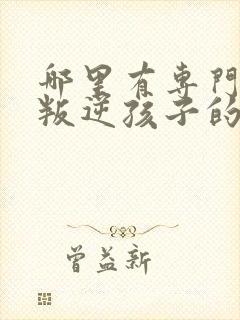 那里有专門
叛逆孩子的
曾益新